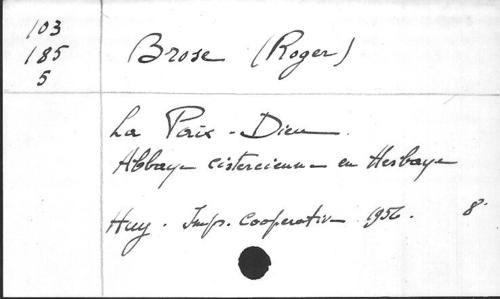 103
185
5
Brose (Roger)
La Paix-Dieu.
Abbaye cistercienne en Hesbaye
Huy. Imp. coopérative 1956. 8°